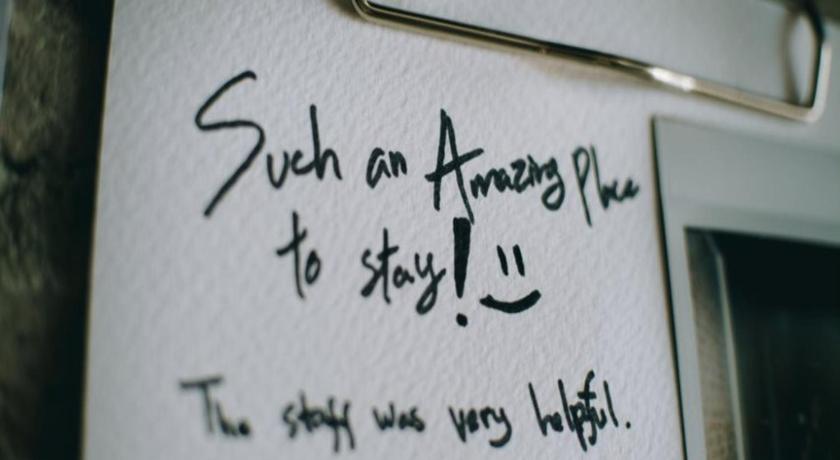 Such an Amazing Place
to stay! :)
The staff was very helpful.